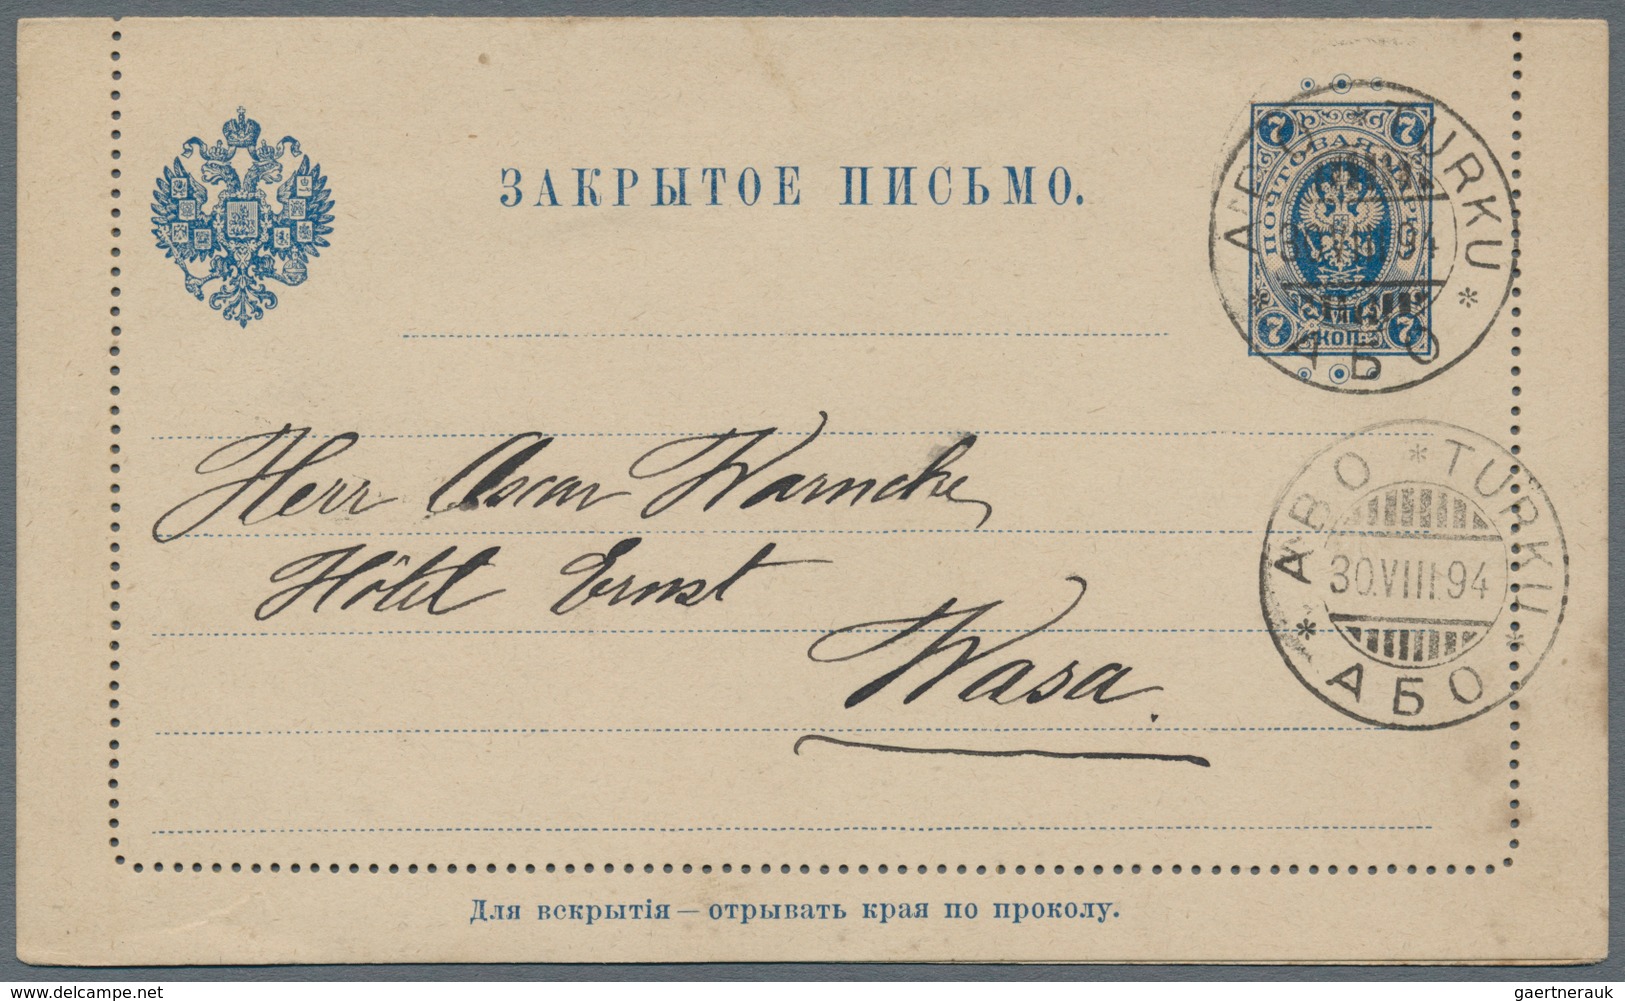 ЗАКРЫТОЕ ПИСЬМО.
7 7
ПОЧТОВАЯ МАРКА
7 КОП. 7
TURKU
94
АБО
Herr Oscar Warncke
Hôtel Ernst
Wasa.
ABO * TURKU
30.VIII.94
* АБО *
Для вскрытія — отрывать края по проколу.
www.delcampe.net
gaertnerauk